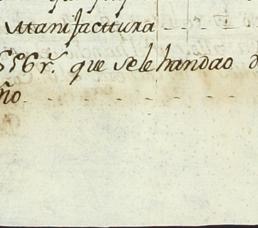 Manifacttura
556 r.s que sele handao d
ño